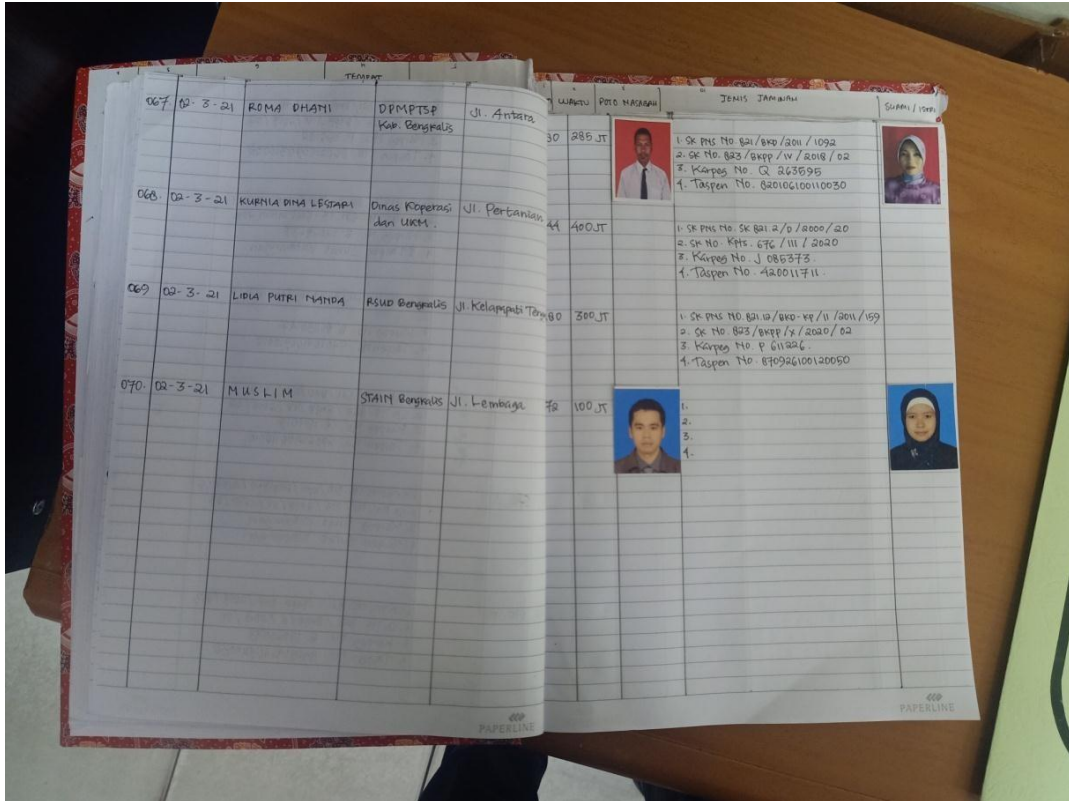 TEMPAT
WAKTU POTO NASABAH JENIS JAMINAN SUAMI / ISTRI
067 02-3-21 ROMA DHANI DPMPTSP Jl. Antara
Kab. Bengkalis
285 JT
1. SK PNS No. 821/BKD/2011/1092
2. SK No. 823/BKPP/IV/2018/02
3. Karpeg No. Q 263595
4. Taspen No. 820106100110030
068. 02-3-21 KURNIA DINA LESTARI Dinas Koperasi Jl. Pertanian
dan UKM.
44 400 JT
1. SK PNS No. SK 821.2/D/2000/20
2. SK No. Kpts. 676/III/2020
3. Karpeg No. J 085373.
4. Taspen No. 420011711.
069 02-3-21 LIDIA PUTRI NANDA RSUD Bengkalis Jl. Kelapapati
80 300 JT
1. SK PNS No. 821.12/BKD-KP/II/2011/159
2. SK No. 823/BKPP/X/2020/02
3. Karpeg No. P 611226.
4. Taspen No. 870926100120050
070. 02-3-21 MUSLIM STAIN Bengkalis Jl. Lembaga
72 100 JT
1.
2.
3.
4.
PAPERLINE
PAPERLINE